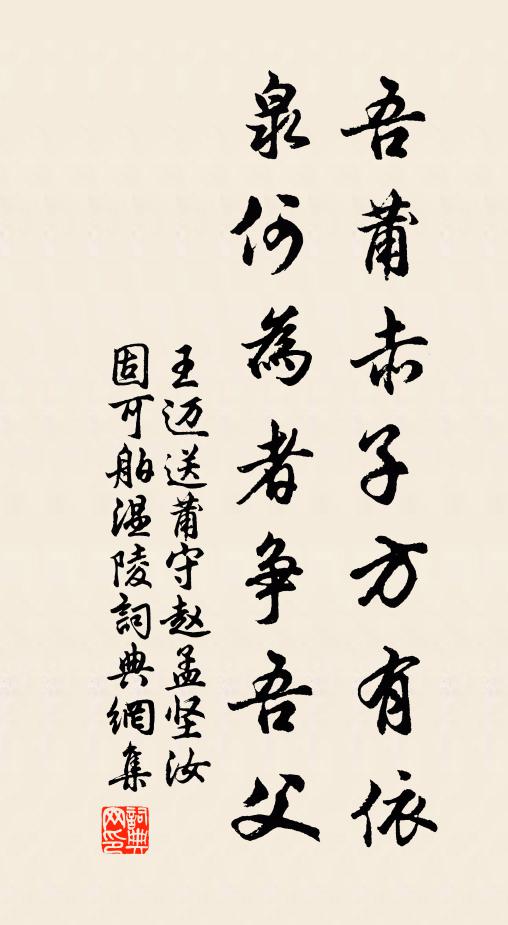 吾莆赤子方有依
泉何為者争吾父
王迈送莆守赵孟坚汝
固可舶温陵詞典網集
詞典网印